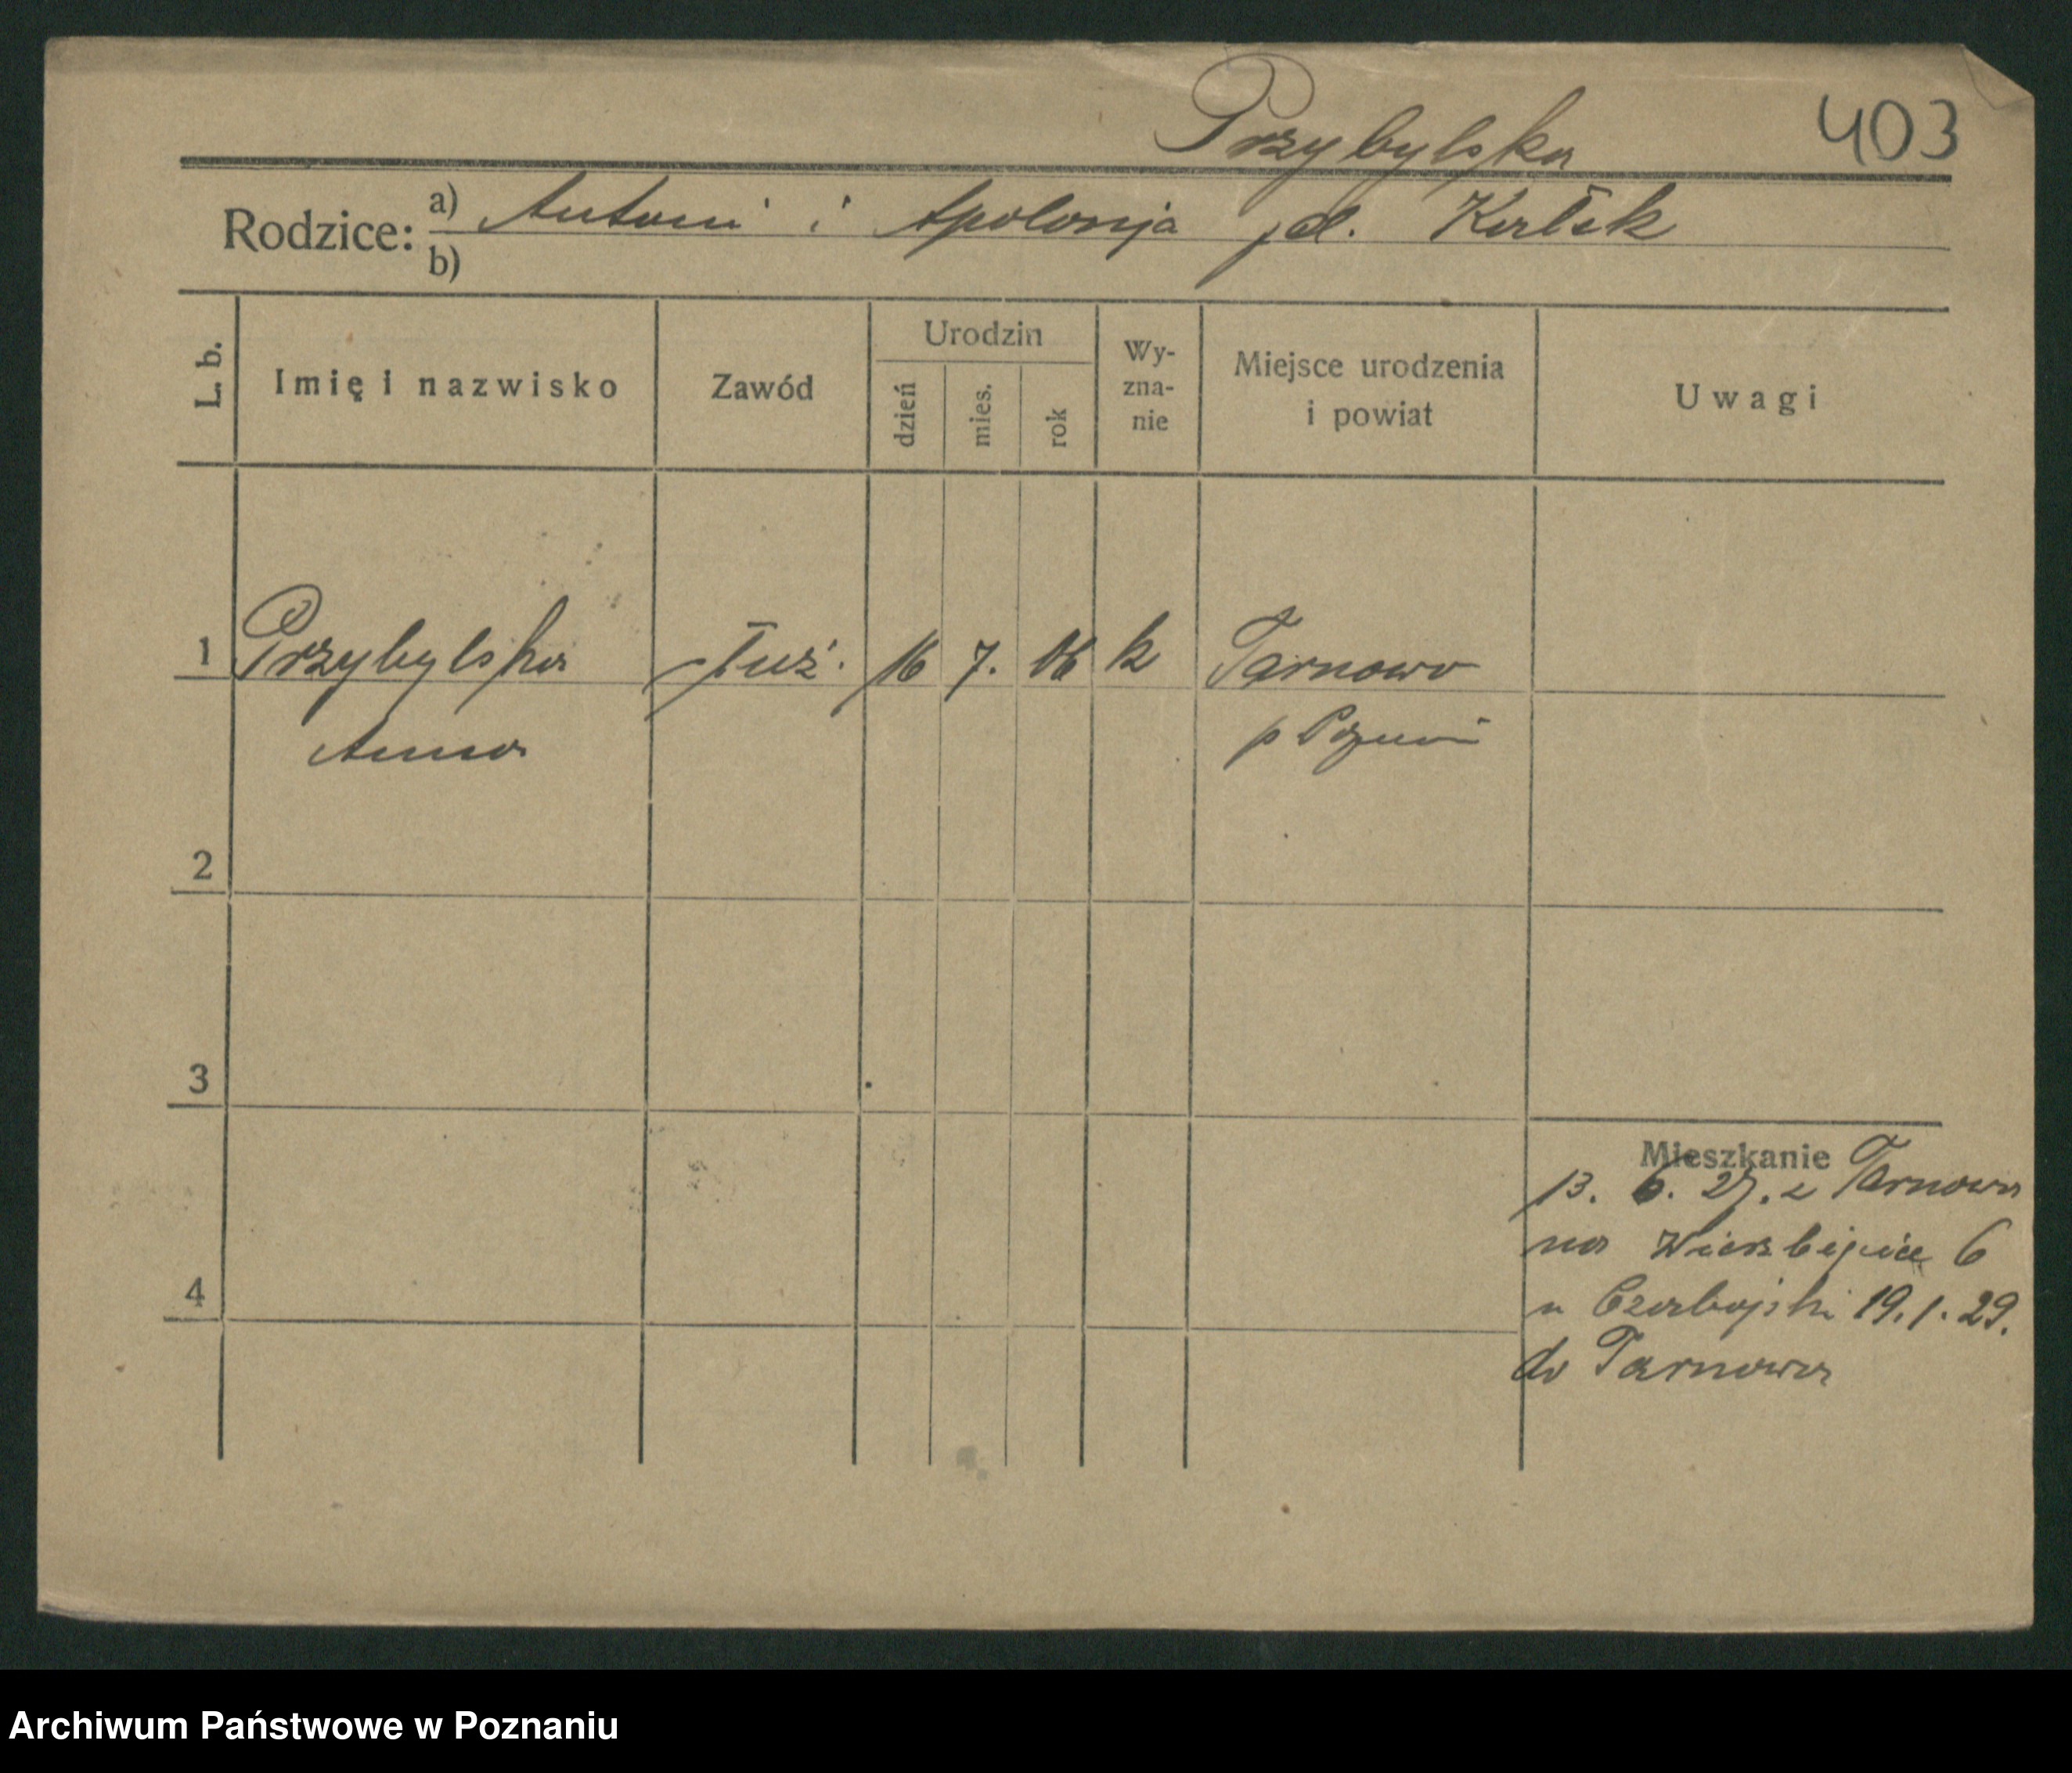 Przybylska 403
Rodzice: a) Antoni i Apolonja
b)
L. b. Imię i nazwisko Zawód Urodzin dzień mies. rok Wy-zna-nie Miejsce urodzenia i powiat Uwagi
1 Przybylska służ. 16 7. 06 k Tarnowo
Anna p Poznań
2
3
4
Mieszkanie
13. 6. 27. z Tarnowa
na Wierzbięcice 6
u 19. 1. 29.
do Tarnowa
Archiwum Państwowe w Poznaniu